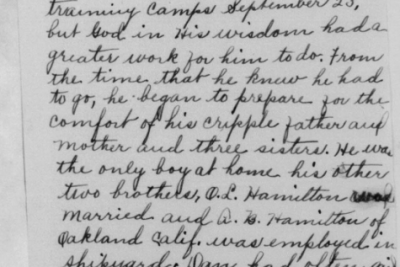 training camps September 23,
but God in His wisdom had a
greater work for him to do. From
the time that he knew he had
to go, he began to prepare for the
comfort of his cripple father and
mother and three sisters. He was
the only boy at home his other
two brothers, O.L. Hamilton was
married and A. B. Hamilton of
Oakland Calif. was employed in